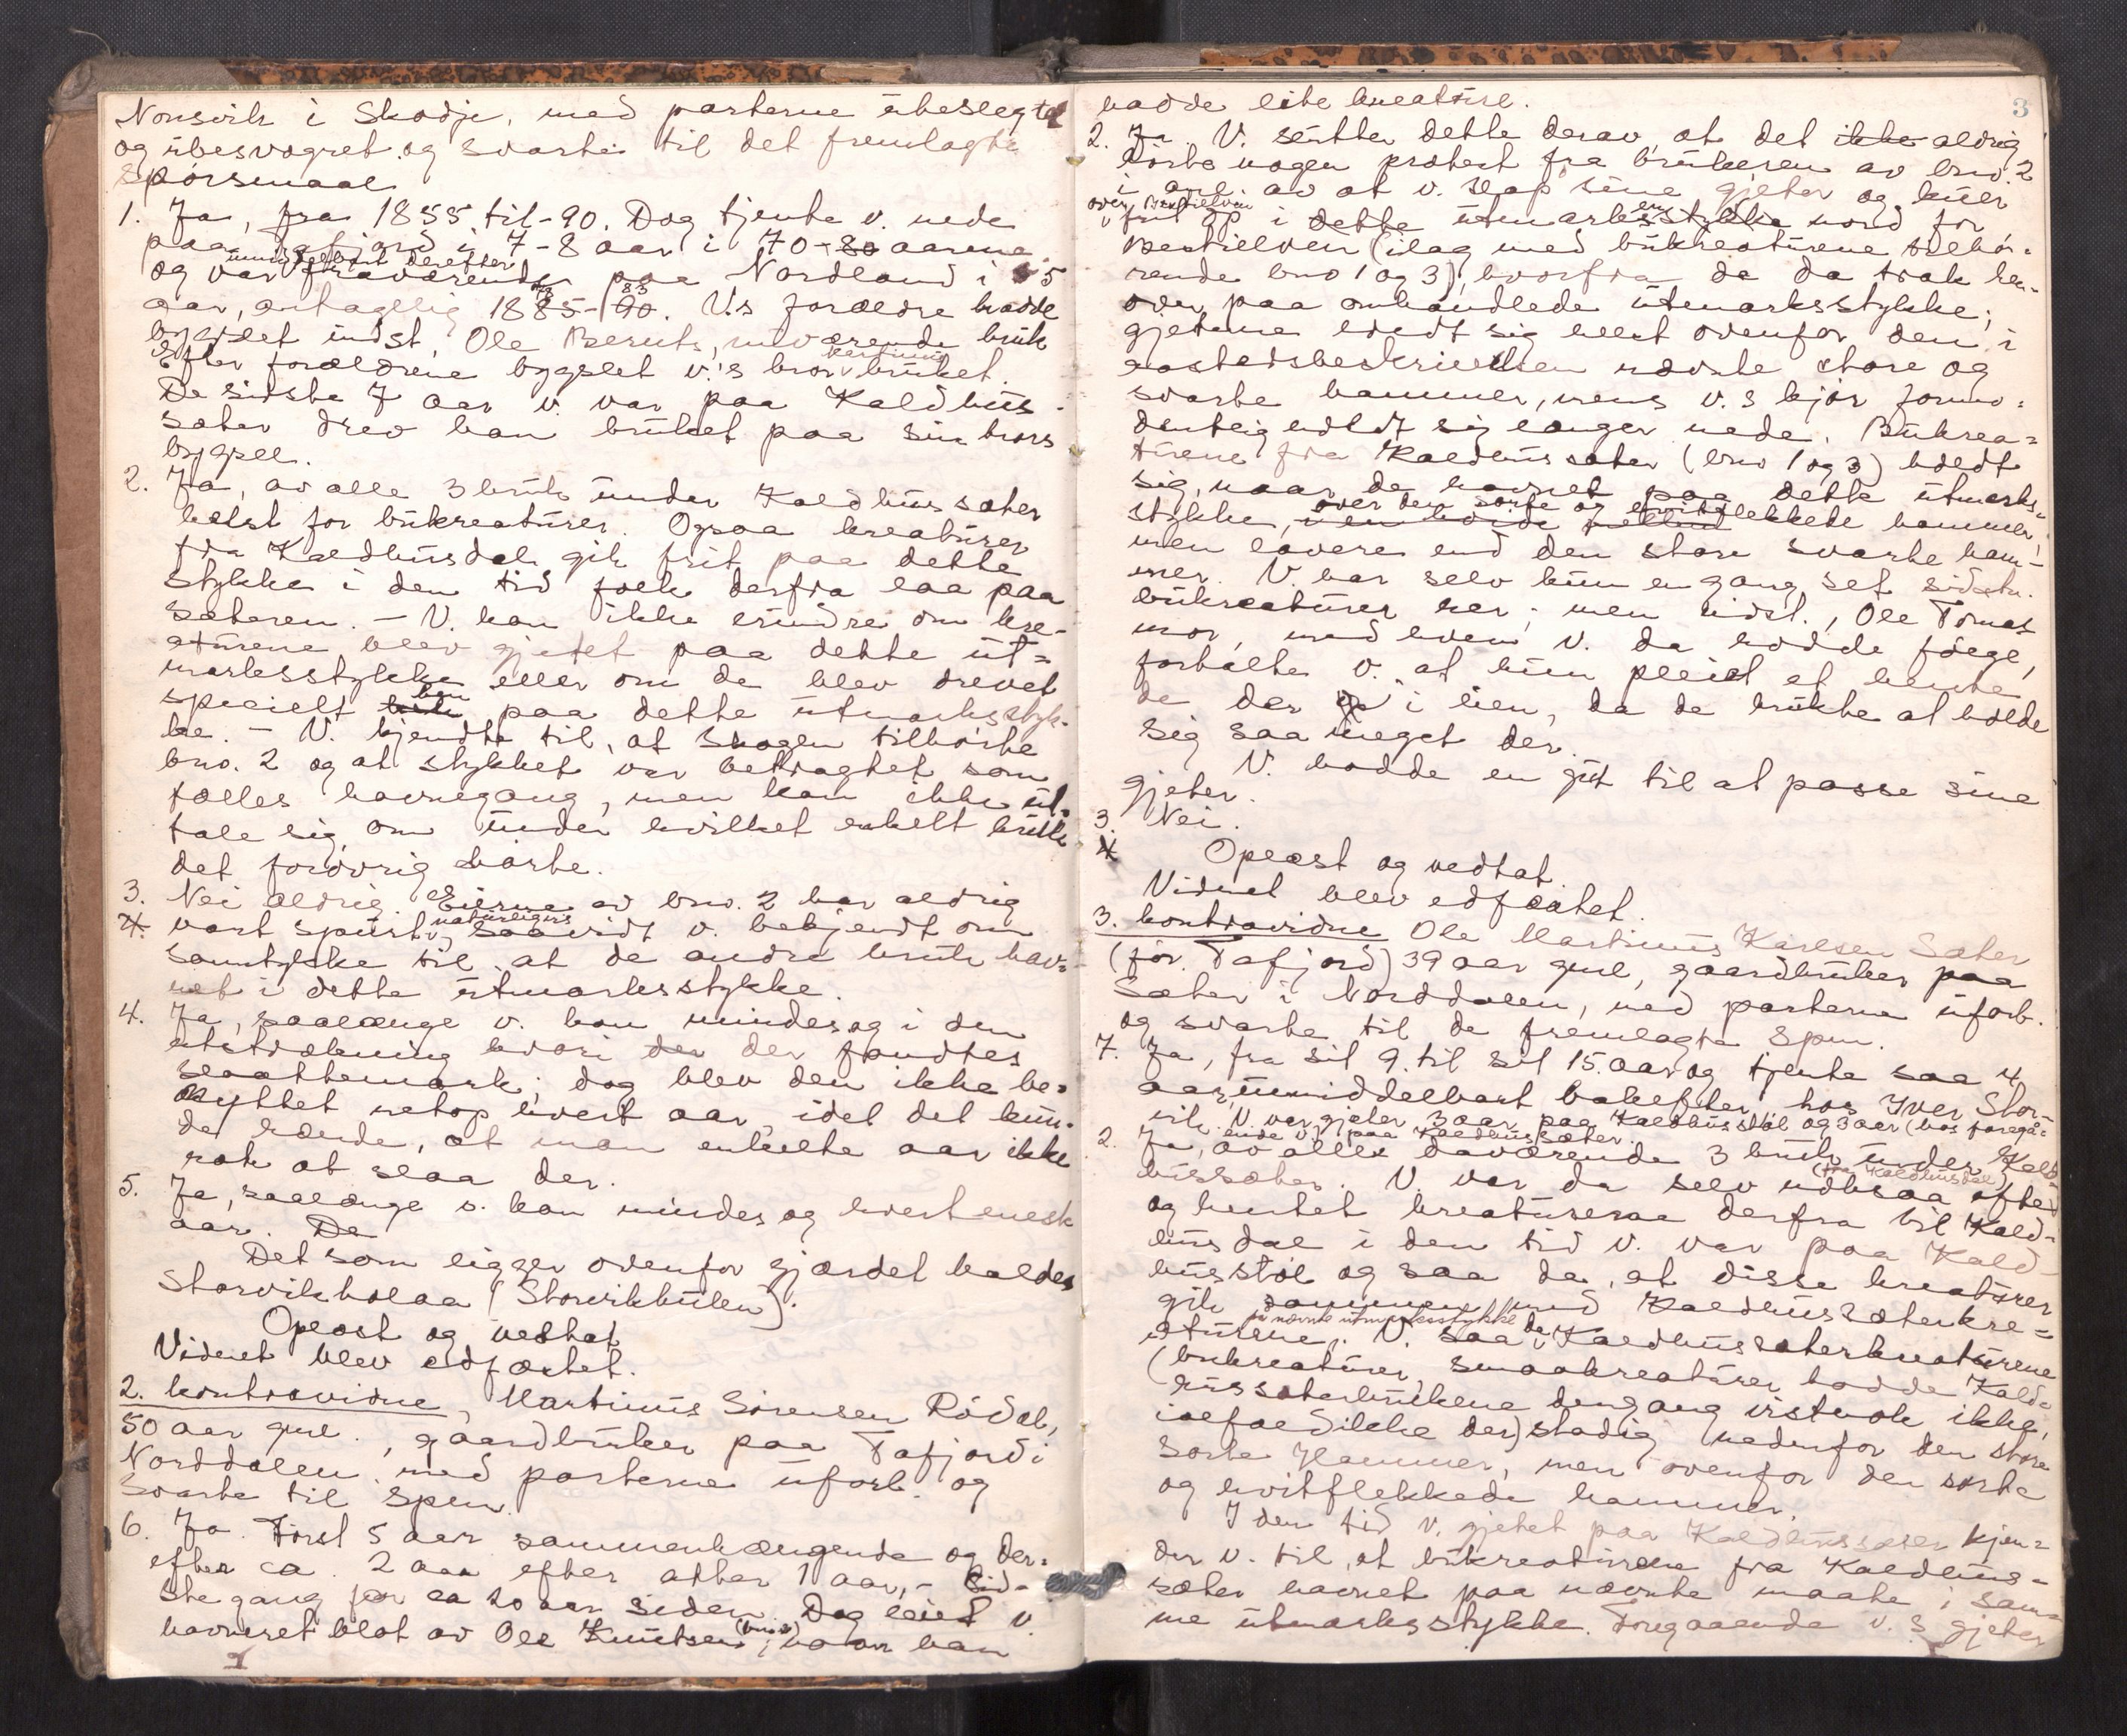 Nonsvik i Skodje, med parterne ubeslegtet
og ubesvogret og svarte til det fremlagte
Spørsmaal
1. Ja, fra 1855 til -90. Dog tjente v. nede
paa Tafjord i 7-8 aar i 70-80 aarene
umiddelbart derefter
og var fraværende paa Nordland i 5
78 83
aar, antagelig 1885-90. V.s forældre hadde
bygslet indst. Ole Berents, nuværende bruk
Efter forældrene bygslet v.'s bror bruket.
De sidste 7 aar v. var paa Kaldhus-
sæter drev han bruket paa sin brors
bygsel.
2. Ja, av alle 3 bruk under Kaldhussæter
helst for bukreaturer. Ogsaa kreaturer
fra Kaldhusdal gik frit paa dette
stykke i den tid folk derfra laa paa
sæteren. - V. kan ikke erindre om kre-
aturene blev gjetet paa dette ut-
marksstykke eller om de blev drevet
specielt paa dette utmarksstyk-
ke. - V. kjendte til, at skogen tilhørte
bno. 2 og at stykket var betragtet som
fælles havnegang, men kan ikke ut-
tale sig om under hvilket enkelt bruk
det forøvrig hørte.
3. Nei aldrig. Eierne av bno. 2 har aldrig
naturligvis
4. vært spurt, saavidt v. bekjendt om
samtykke til, at de andre bruk hav-
net i dette utmarksstykke.
4. Ja, saalænge v. kan mindes og i den
utstrækning hvori der der fandtes
slaattemark; dog blev den ikke be-
nyttet netop hvert aar, idet det kun-
de hænde, at man enkelte aar ikke
rak at slaa der.
5. Ja, saalænge v. kan mindes og hvert eneste
aar. De
Det som ligger ovenfor gjærdet kaldes
Storvikholaa (Storvikhulen).
Oplæst og vedtat
Vidnet blev edfæstet.
2. kontravidne, Martinus Sørensen Rødal,
50 aar gml., gaardbruker paa Tafjord i
Norddalen, med parterne uforb. og
svarte til spm.
6. Ja. Først 5 aar sammenhængende og der-
efter ca. 2 aar efter atter 1 aar, - sid-
ste gang for ca 20 aar siden. Dog leiet v.
havneret blot av Ole Knutsen, naar han
3
hadde lite kreature.
2. Ja. V. slutter dette derav, at det ikke aldrig
hørte nogen protest fra brukeren av bno. 2
i anl. av at v. slap sine gjeter og kuer
over
frit op i dette utmarksstykke nord for
Bestielven (ilag med bukreaturene tilhø-
rende bno 1 og 3), hvorfra de da trak hen-
over paa omhandlede utmarksstykke;
gjetene holdt sig helst ovenfor den i
aastedsbeskrivelsen nævnte store og
svarte hammer, mens v.s kjør formo-
dentlig holdt sig længer nede. Bukrea-
turene fra Kaldhussæter (bno 1 og 3) holdt
sig, naar de havnet paa dette utmarks-
over den sorte og hvitflekkede hammer,
stykke,
men lavere end den store svarte ham-
mer. V. har selv kun en gang set
bukreaturer her; men indst., Ole Tomas
mor, med hvem v. da hadde følge,
fortalte v. at hun pleiet at hente
de der i lien, da de brukte at holde
sig saa meget der.
V. hadde en gut til at passe sine
gjeter.
3. Nei.
4. Oplæst og vedtat.
Vidnet blev edfæstet.
3. kontravidne Ole Martinus Karlsen Sæter
(før Tafjord) 39 aar gml, gaardbruker paa
Sæter i Norddalen, med parterne uforb.
og svarte til de fremlagte spm.
7. Ja, fra sit 9. til sit 15. aar og tjente saa 4
aar umiddelbart bakefter hos Iver Stor-
vik. V. var gjeter 3 aar paa Kaldhusstøl og 3 aar (hos foregå-
ende v.) paa Kaldhussæter.
2. Ja, av alle daværende 3 bruk under Kald-
(fra Kaldhusdal)
hussæter. V. var da selv ofte
og hentet kreaturerne derfra til Kald-
husdal i den tid v. var paa Kald-
husstøl og saa da, at disse kreaturer
gik sammen med Kaldhussæterkre-
på nævnte utmarksstykke
aturene. V. saa de Kaldhussæterkreaturene
(bukreaturer, smaakreaturer hadde Kald-
hussæterbrukene dengang vistnok ikke,
ialfald ikke der) stadig nedenfor den store
sorte Hammer, men ovenfor den sorte
og hvitflekkede hammer.
I den tid v. gjetet paa Kaldhussæter kjen-
der v. til, at bukreaturene fra Kaldhus-
sæter havnet paa nævnte maate i sam-
me utmarksstykke. Foregaaende v.s gjeter